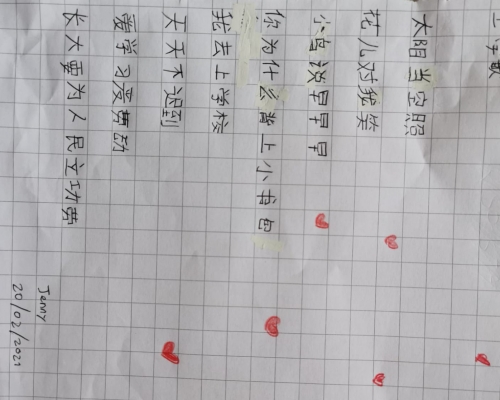 太阳当空照
花儿对我笑
小鸟说早早早
你为什么背上小书包
我去上学校
天天不迟到
爱学习爱劳动
长大要为人民立功劳
Jenny
20/02/2021